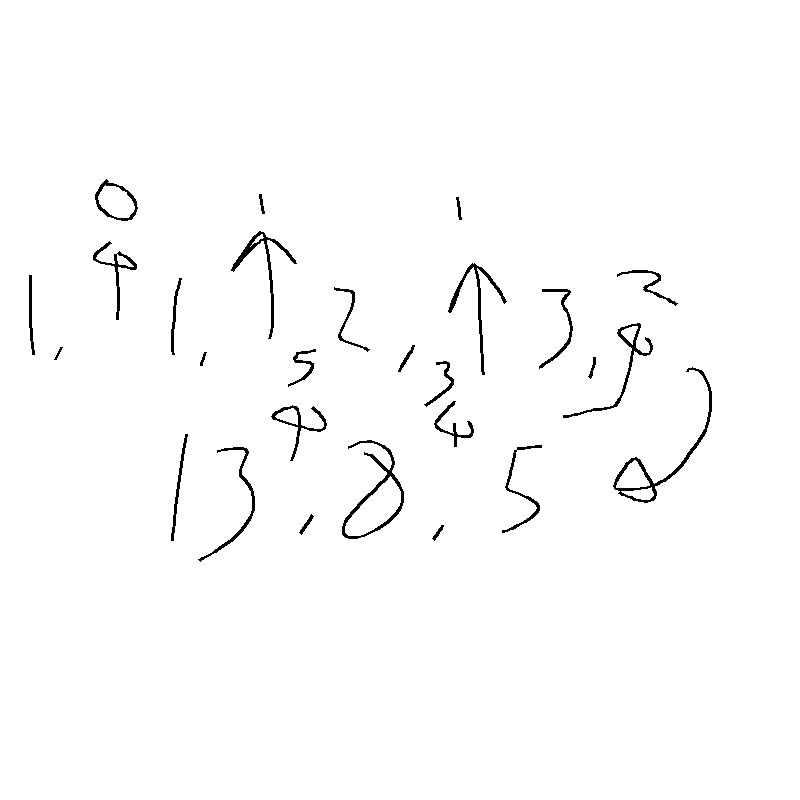 0 1 1
1, 1, 2, 3, 2
5 3
13, 8, 5